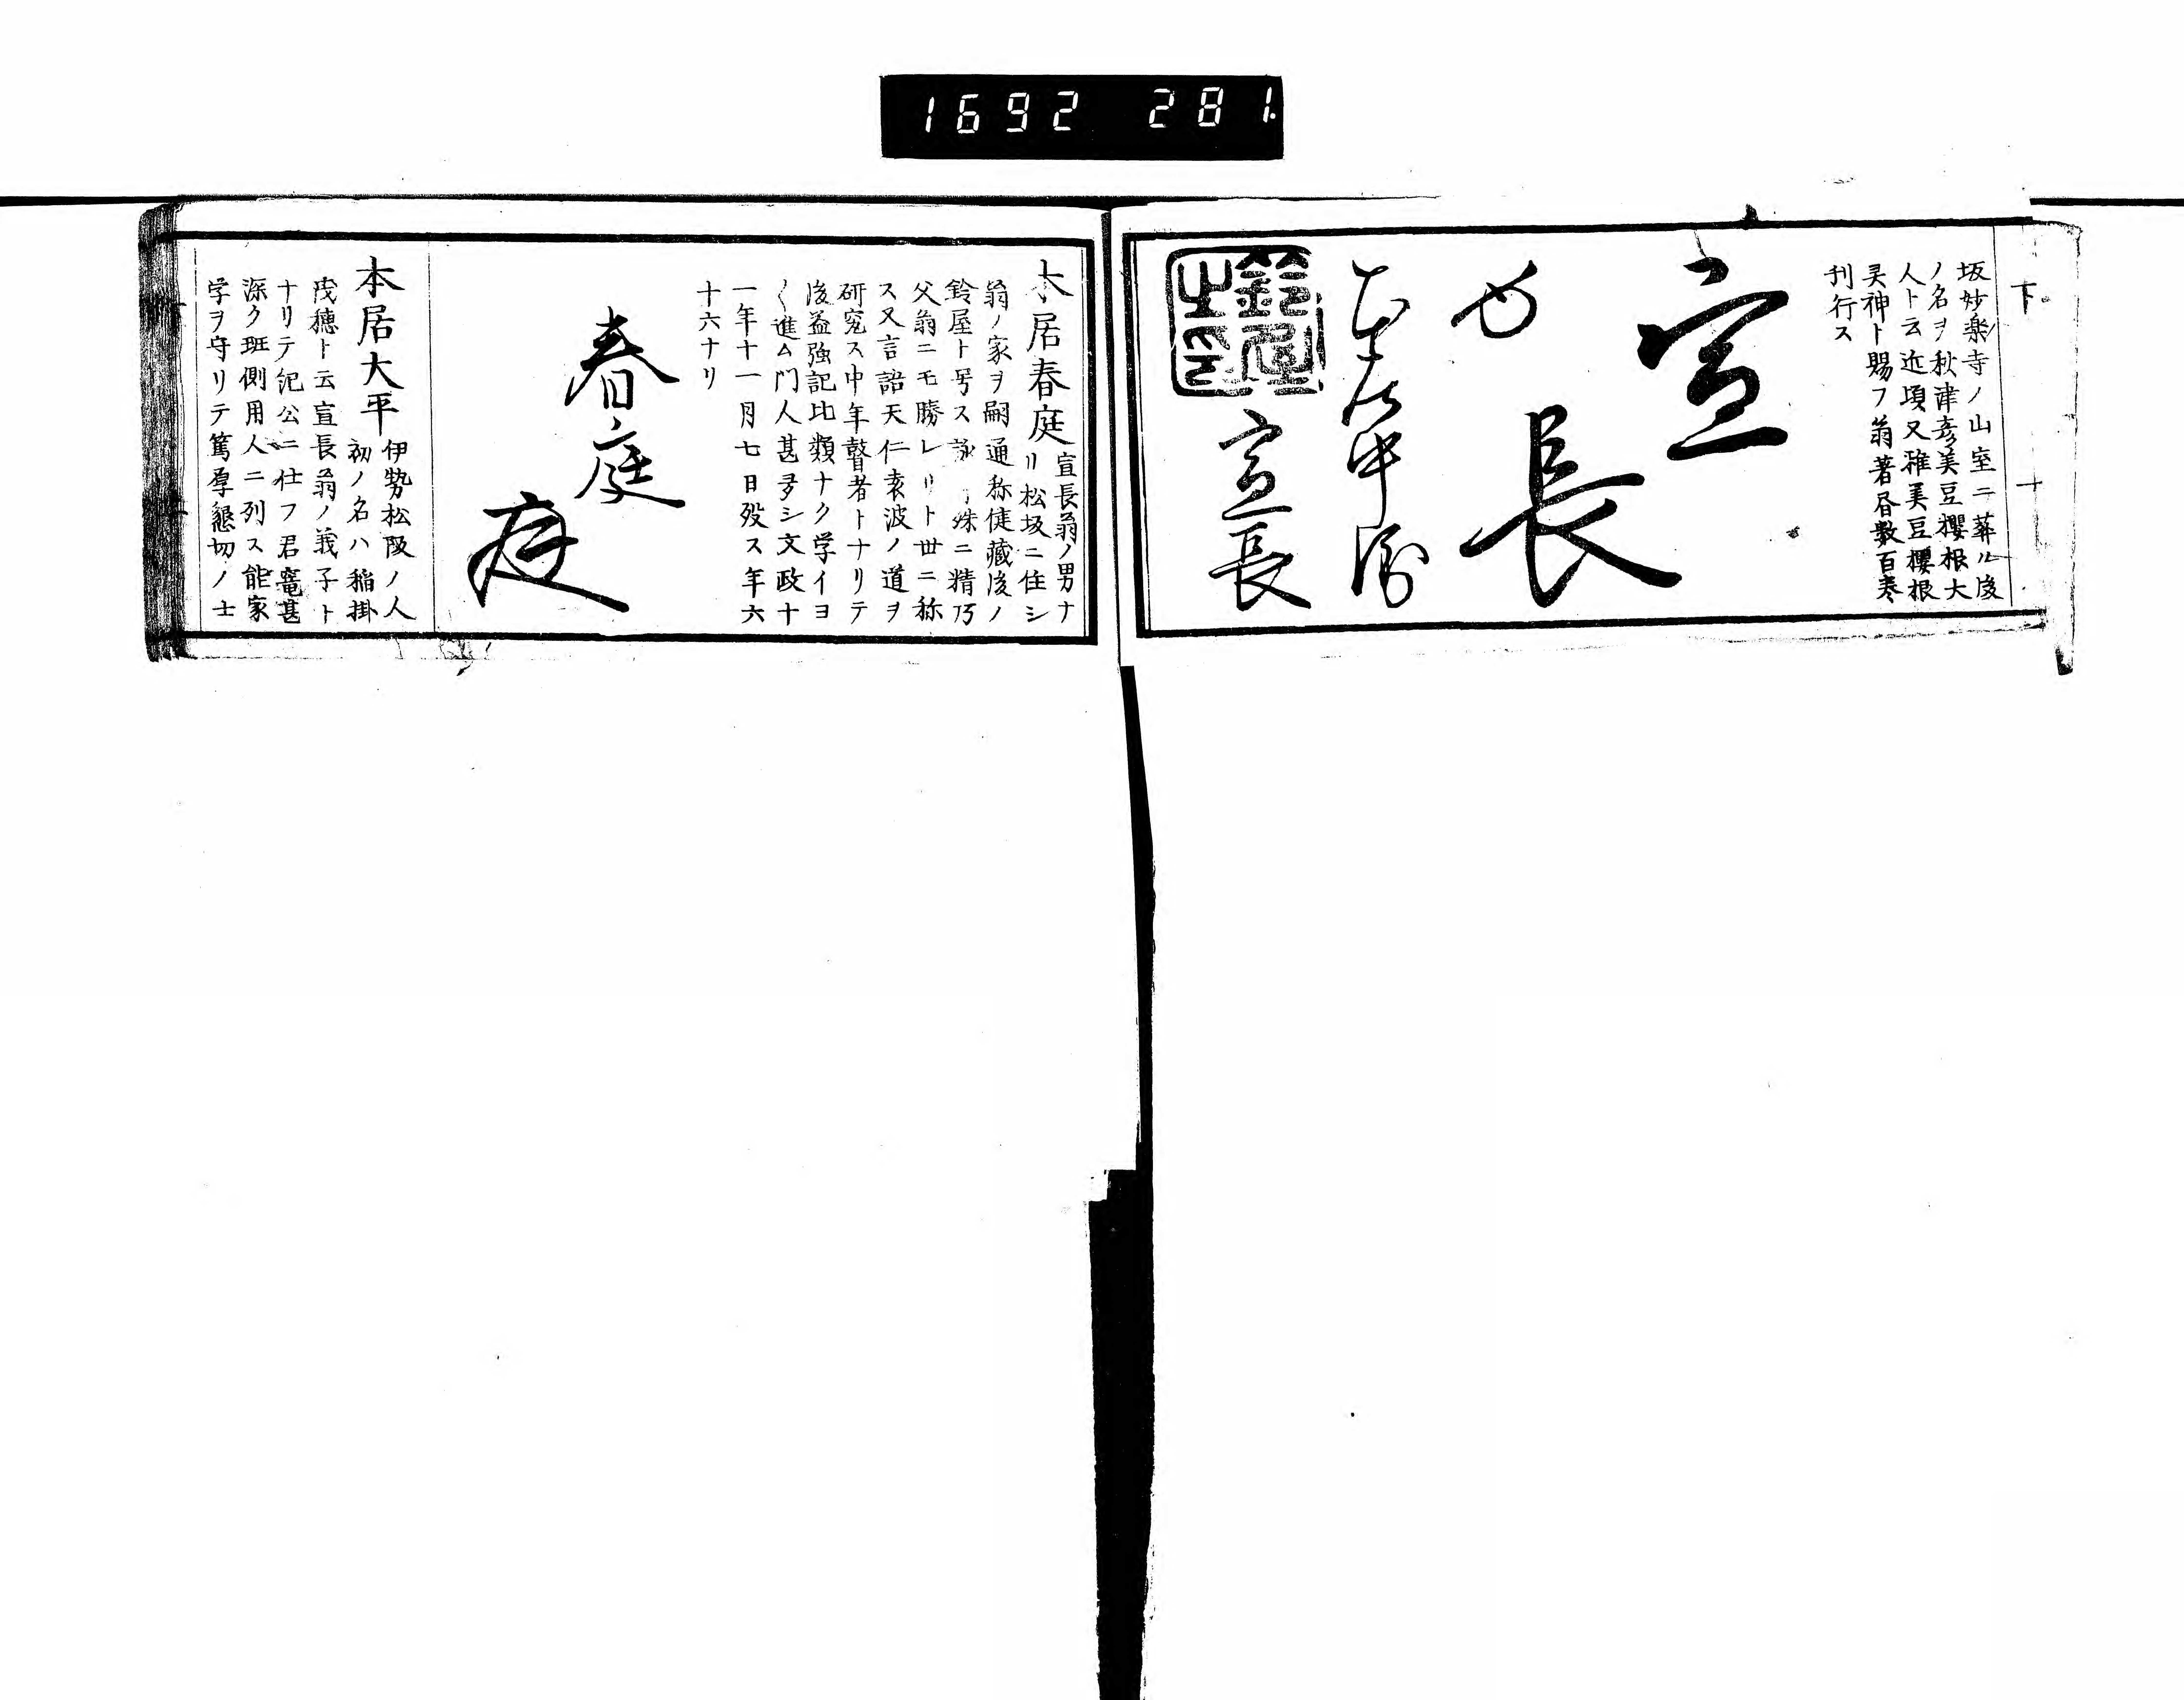 1692 281
下 十
坂妙楽寺ノ山室ニ葬ル後
ノ名ヲ秋津彦美豆櫻根大
人ト云近頃又雅美豆櫻根
灵神ト賜フ翁著昏数百巻
刊行ス
宣
長
本居中衛
宣長
鈴屋之印
本居春庭 宣長翁ノ男ナ
リ松坂ニ住シ
翁ノ家ヲ嗣通称健藏後ノ
鈴屋ト号ス詠 殊ニ精乃
父翁ニモ勝レリト世ニ称
ス又言語天仁袁波ノ道ヲ
研究ス中年瞽者トナリテ
後益強記比類ナク学イヨ
〱進ム門人甚多シ文政十
一年十一月七日歿ス年六
十六ナリ
春庭
庭
本居大平 伊勢松阪ノ人
初ノ名ハ稲掛
茂穂ト云宣長翁ノ義子ト
ナリテ紀公ニ仕フ君寵甚
深ク班側用人ニ列ス能家
学ヲ守リテ篤厚懇切ノ士